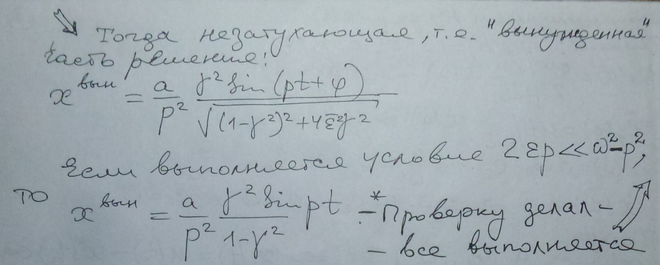 Тогда незатухающая, т.е. "вынужденная"
часть решения:
x^вын = a/p² · γ² sin(pt+φ) / √((1-γ²)²+4ε̄²γ²)
Если выполняется условие 2εp << ω²-p²,
то x^вын = a/p² · γ² sin pt / (1-γ²) -* Проверку делал -
- все выполняется